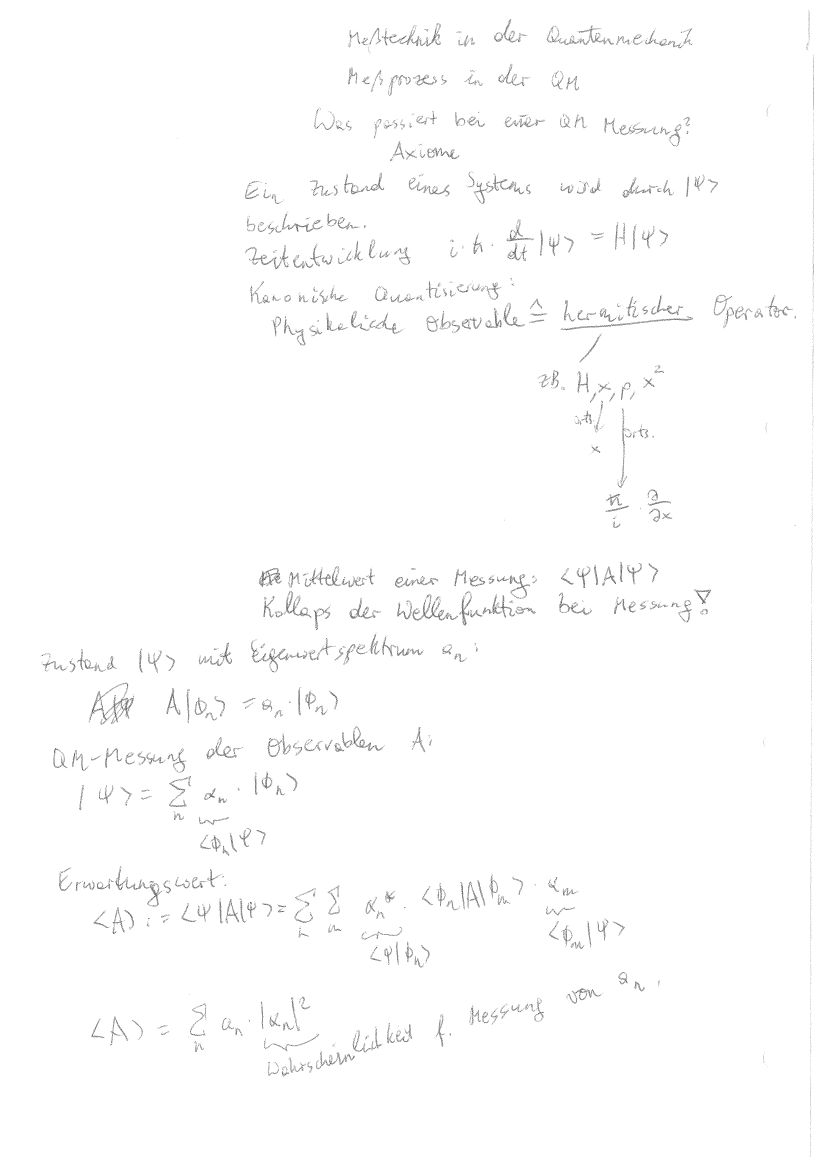 Meßtechnik in der Quantenmechanik
Meßprozess in der QM
Was passiert bei einer QM Messung?
Axiome
Ein Zustand eines Systems wird durch |Ψ>
beschrieben.
Zeitentwicklung i·ħ· d/dt |Ψ> = H|Ψ>
Kanonische Quantisierung:
Physikalische Observable ≙ hermitischer Operator.
zB. H, x, p, x²
orts. orts.
x
ħ/i · ∂/∂x
Mittelwert einer Messung: <Ψ|A|Ψ>
Kollaps der Wellenfunktion bei Messung!
Zustand |Ψ> mit Eigenwertspektrum aₙ:
A|Φₙ> = aₙ·|Φₙ>
QM-Messung der Observablen A:
|Ψ> = Σₙ αₙ · |Φₙ>
<Φₙ|Ψ>
Erwartungswert:
<A> := <Ψ|A|Ψ> = Σₙ Σₘ αₙ* · <Φₙ|A|Φₘ> · αₘ
<Ψ|Φₙ> <Φₘ|Ψ>
<A> = Σₙ aₙ · |αₙ|²
Wahrscheinlichkeit f. Messung von aₙ.